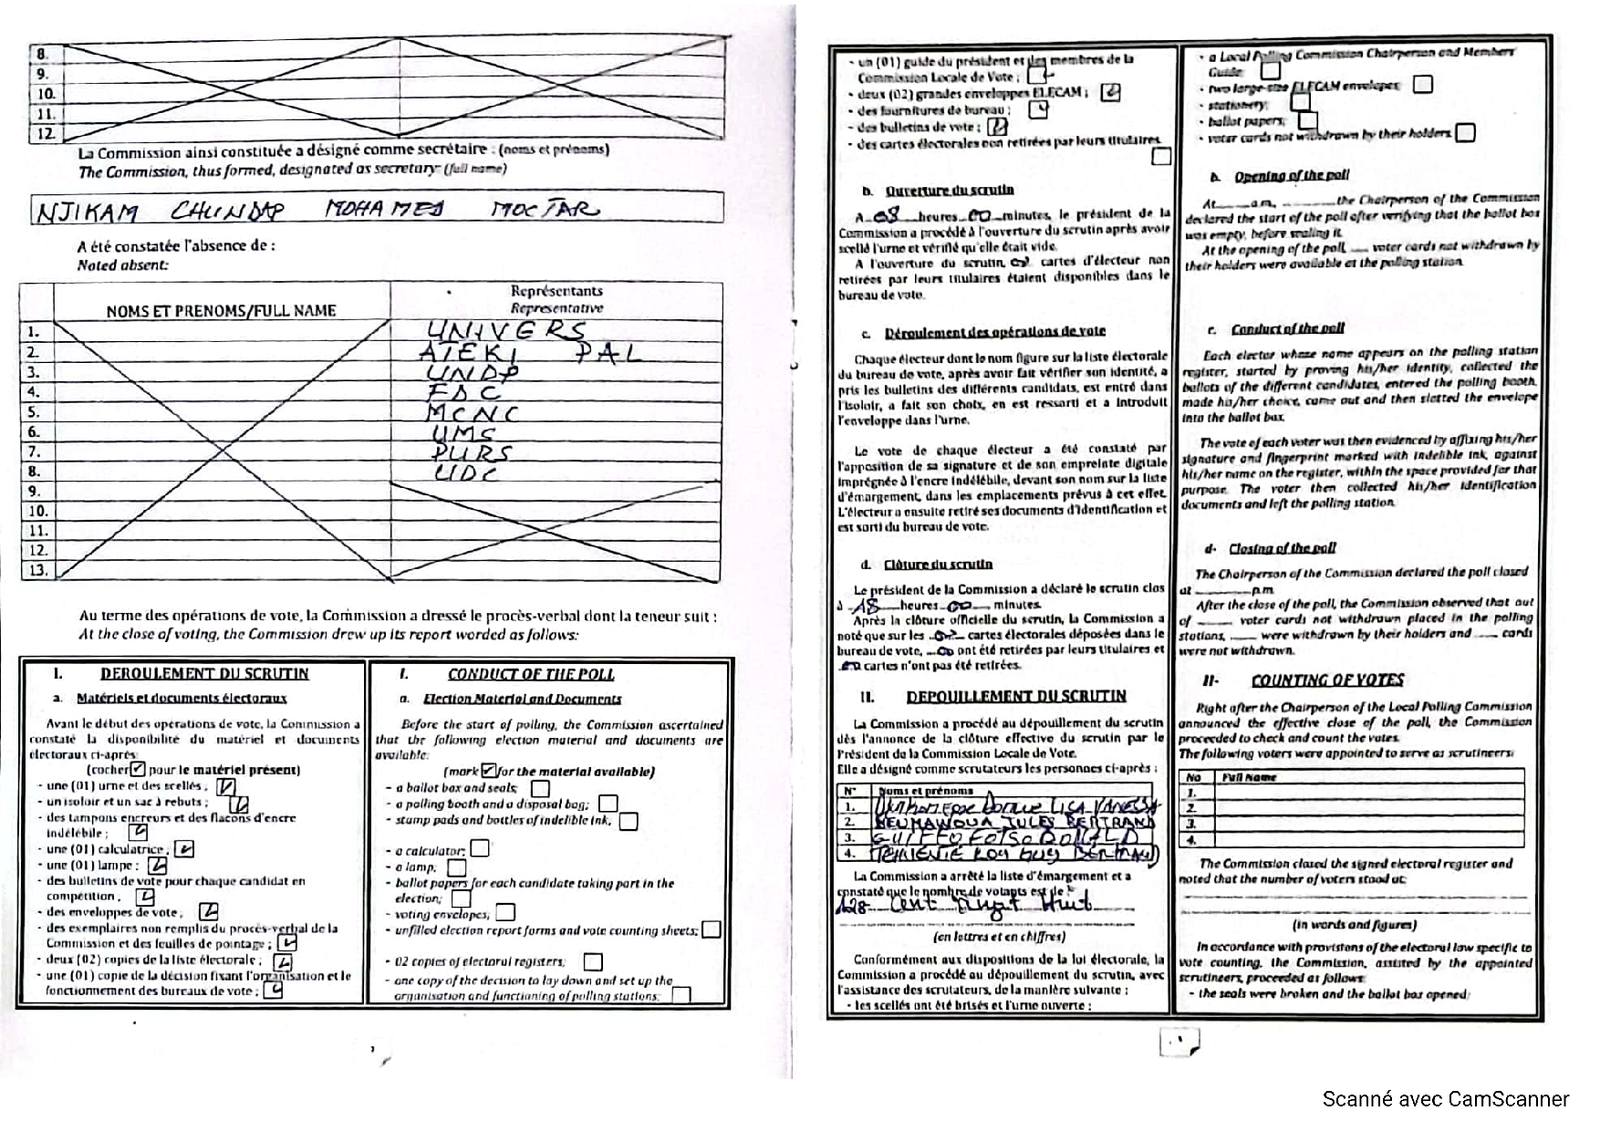 8.
9.
10.
11.
12.
La Commission ainsi constituée a désigné comme secrétaire : (noms et prénoms)
The Commission, thus formed, designated as secretary: (full name)
NJIKAM CHUNDAP MOHAMED MOCTAR
A été constatée l'absence de :
Noted absent:
NOMS ET PRENOMS/FULL NAME
Représentants
Representative
1. UNIVERS
2. ATEKI PAL
3. UNDP
4. FDC
5. MCNC
6. UMS
7. PURS
8. UDC
9.
10.
11.
12.
13.
Au terme des opérations de vote, la Commission a dressé le procès-verbal dont la teneur suit :
At the close of voting, the Commission drew up its report worded as follows:
I. DEROULEMENT DU SCRUTIN
a. Matériels et documents électoraux
Avant le début des opérations de vote, la Commission a
constaté la disponibilité du matériel et documents
électoraux ci-après:
(cocher ☑ pour le matériel présent)
- une (01) urne et des scellés ;
- un isoloir et un sac à rebuts ;
- des tampons encreurs et des flacons d'encre
indélébile ;
- une (01) calculatrice ;
- une (01) lampe ;
- des bulletins de vote pour chaque candidat en
compétition ,
- des enveloppes de vote ,
- des exemplaires non remplis du procès-verbal de la
Commission et des feuilles de pointage ;
- deux (02) copies de la liste électorale ;
- une (01) copie de la décision fixant l'organisation et le
fonctionnement des bureaux de vote ;
I. CONDUCT OF THE POLL
a. Election Material and Documents
Before the start of polling, the Commission ascertained
that the following election material and documents are
available:
(mark ☑ for the material available)
- a ballot box and seals;
- a polling booth and a disposal bag;
- stamp pads and bottles of indelible ink,
- a calculator;
- a lamp;
- ballot papers for each candidate taking part in the
election;
- voting envelopes;
- unfilled election report forms and vote counting sheets;
- 02 copies of electoral registers;
- one copy of the decision to lay down and set up the
organisation and functioning of polling stations;
- un (01) guide du président et des membres de la
Commission Locale de Vote ;
- deux (02) grandes enveloppes ELECAM ;
- des fournitures de bureau ;
- des bulletins de vote ;
- des cartes électorales non retirées par leurs titulaires
b. Ouverture du scrutin
A 08 heures 00 minutes, le président de la
Commission a procédé à l'ouverture du scrutin après avoir
scellé l'urne et vérifié qu'elle était vide.
A l'ouverture du scrutin, cartes d'électeur non
retirées par leurs titulaires étaient disponibles dans le
bureau de vote.
c. Déroulement des opérations de vote
Chaque électeur dont le nom figure sur la liste électorale
du bureau de vote, après avoir fait vérifier son identité, a
pris les bulletins des différents candidats, est entré dans
l'isoloir, a fait son choix, en est ressorti et a introduit
l'enveloppe dans l'urne.
Le vote de chaque électeur a été constaté par
l'apposition de sa signature et de son empreinte digitale
imprégnée à l'encre indélébile, devant son nom sur la liste
d'émargement, dans les emplacements prévus à cet effet.
L'électeur a ensuite retiré ses documents d'identification et
est sorti du bureau de vote.
d. Clôture du scrutin
Le président de la Commission a déclaré le scrutin clos
à 18 heures 00 minutes.
Après la clôture officielle du scrutin, la Commission a
noté que sur les cartes électorales déposées dans le
bureau de vote, 00 ont été retirées par leurs titulaires et
cartes n'ont pas été retirées.
II. DEPOUILLEMENT DU SCRUTIN
La Commission a procédé au dépouillement du scrutin
dès l'annonce de la clôture effective du scrutin par le
Président de la Commission Locale de Vote.
Elle a désigné comme scrutateurs les personnes ci-après :
N° Noms et prénoms
1. LISA VANESSA
2. JULES BERTRAND
3. GUIFFO FOTSO DONALD
4. GUY BERTRAND
La Commission a arrêté la liste d'émargement et a
constaté que le nombre de votants est de :
128 Cent Vingt Huit
(en lettres et en chiffres)
Conformément aux dispositions de la loi électorale, la
Commission a procédé au dépouillement du scrutin, avec
l'assistance des scrutateurs, de la manière suivante :
- les scellés ont été brisés et l'urne ouverte ;
- a Local Polling Commission Chairperson and Members'
Guide
- two large-size ELECAM envelopes;
- stationery;
- ballot papers;
- voter cards not withdrawn by their holders
b. Opening of the poll
At____a.m, ________the Chairperson of the Commission
declared the start of the poll after verifying that the ballot box
was empty, before sealing it.
At the opening of the poll, ___ voter cards not withdrawn by
their holders were available at the polling station.
c. Conduct of the poll
Each elector whose name appears on the polling station
register, started by proving his/her identity, collected the
ballots of the different candidates, entered the polling booth,
made his/her choice, came out and then slotted the envelope
into the ballot box.
The vote of each voter was then evidenced by affixing his/her
signature and fingerprint marked with indelible ink, against
his/her name on the register, within the space provided for that
purpose. The voter then collected his/her identification
documents and left the polling station.
d- Closing of the poll
The Chairperson of the Commission declared the poll closed
at ________p.m
After the close of the poll, the Commission observed that out
of ____ voter cards not withdrawn placed in the polling
stations, ____ were withdrawn by their holders and ____ cards
were not withdrawn.
II- COUNTING OF VOTES
Right after the Chairperson of the Local Polling Commission
announced the effective close of the poll, the Commission
proceeded to check and count the votes.
The following voters were appointed to serve as scrutineers:
No Full Name
1.
2.
3.
4.
The Commission closed the signed electoral register and
noted that the number of voters stood at:
(in words and figures)
In accordance with provisions of the electoral law specific to
vote counting, the Commission, assisted by the appointed
scrutineers, proceeded as follows:
- the seals were broken and the ballot box opened;
Scanné avec CamScanner